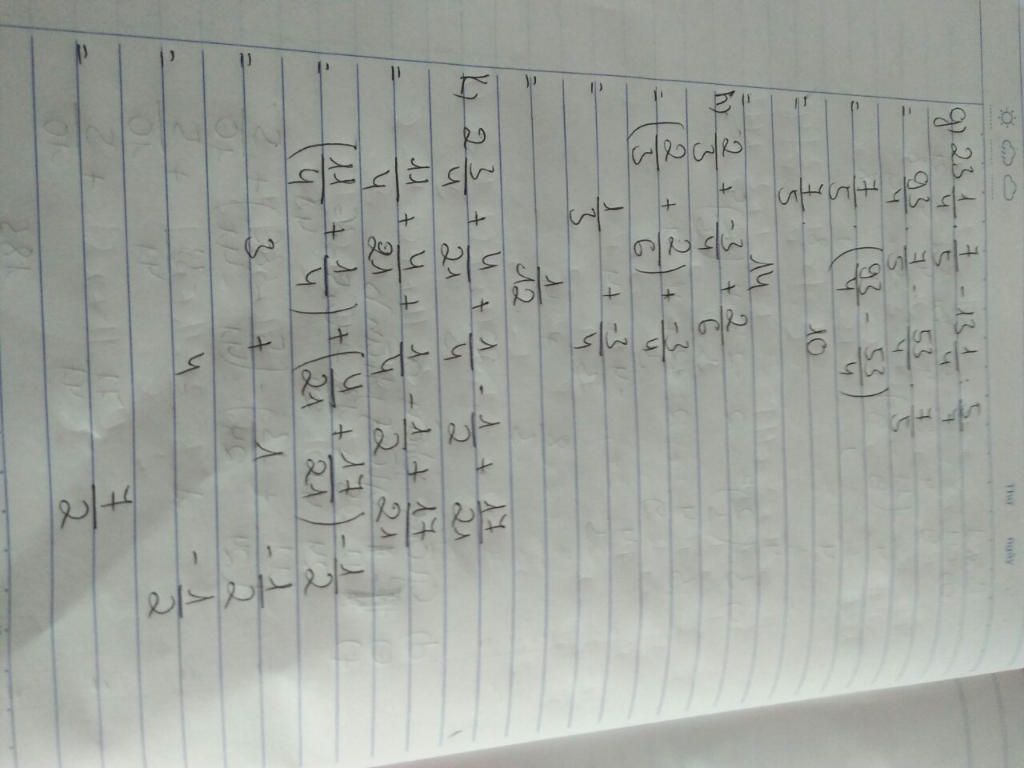 Thứ Ngày
g) 23 1/4 . 7/5 - 13 1/4 : 5/7
= 93/4 . 7/5 - 53/4 . 7/5
= 7/5 . (93/4 - 53/4)
= 7/5 . 10
= 14
h) 2/3 + -3/4 + 2/6
= (2/3 + 2/6) + -3/4
= 1/3 + -3/4
= 1/12
k) 2 3/4 + 4/21 + 1/4 - 1/2 + 17/21
= 11/4 + 4/21 + 1/4 - 1/2 + 17/21
= (11/4 + 1/4) + (4/21 + 17/21) - 1/2
= 3 + 1 - 1/2
= 4 - 1/2
= 7/2